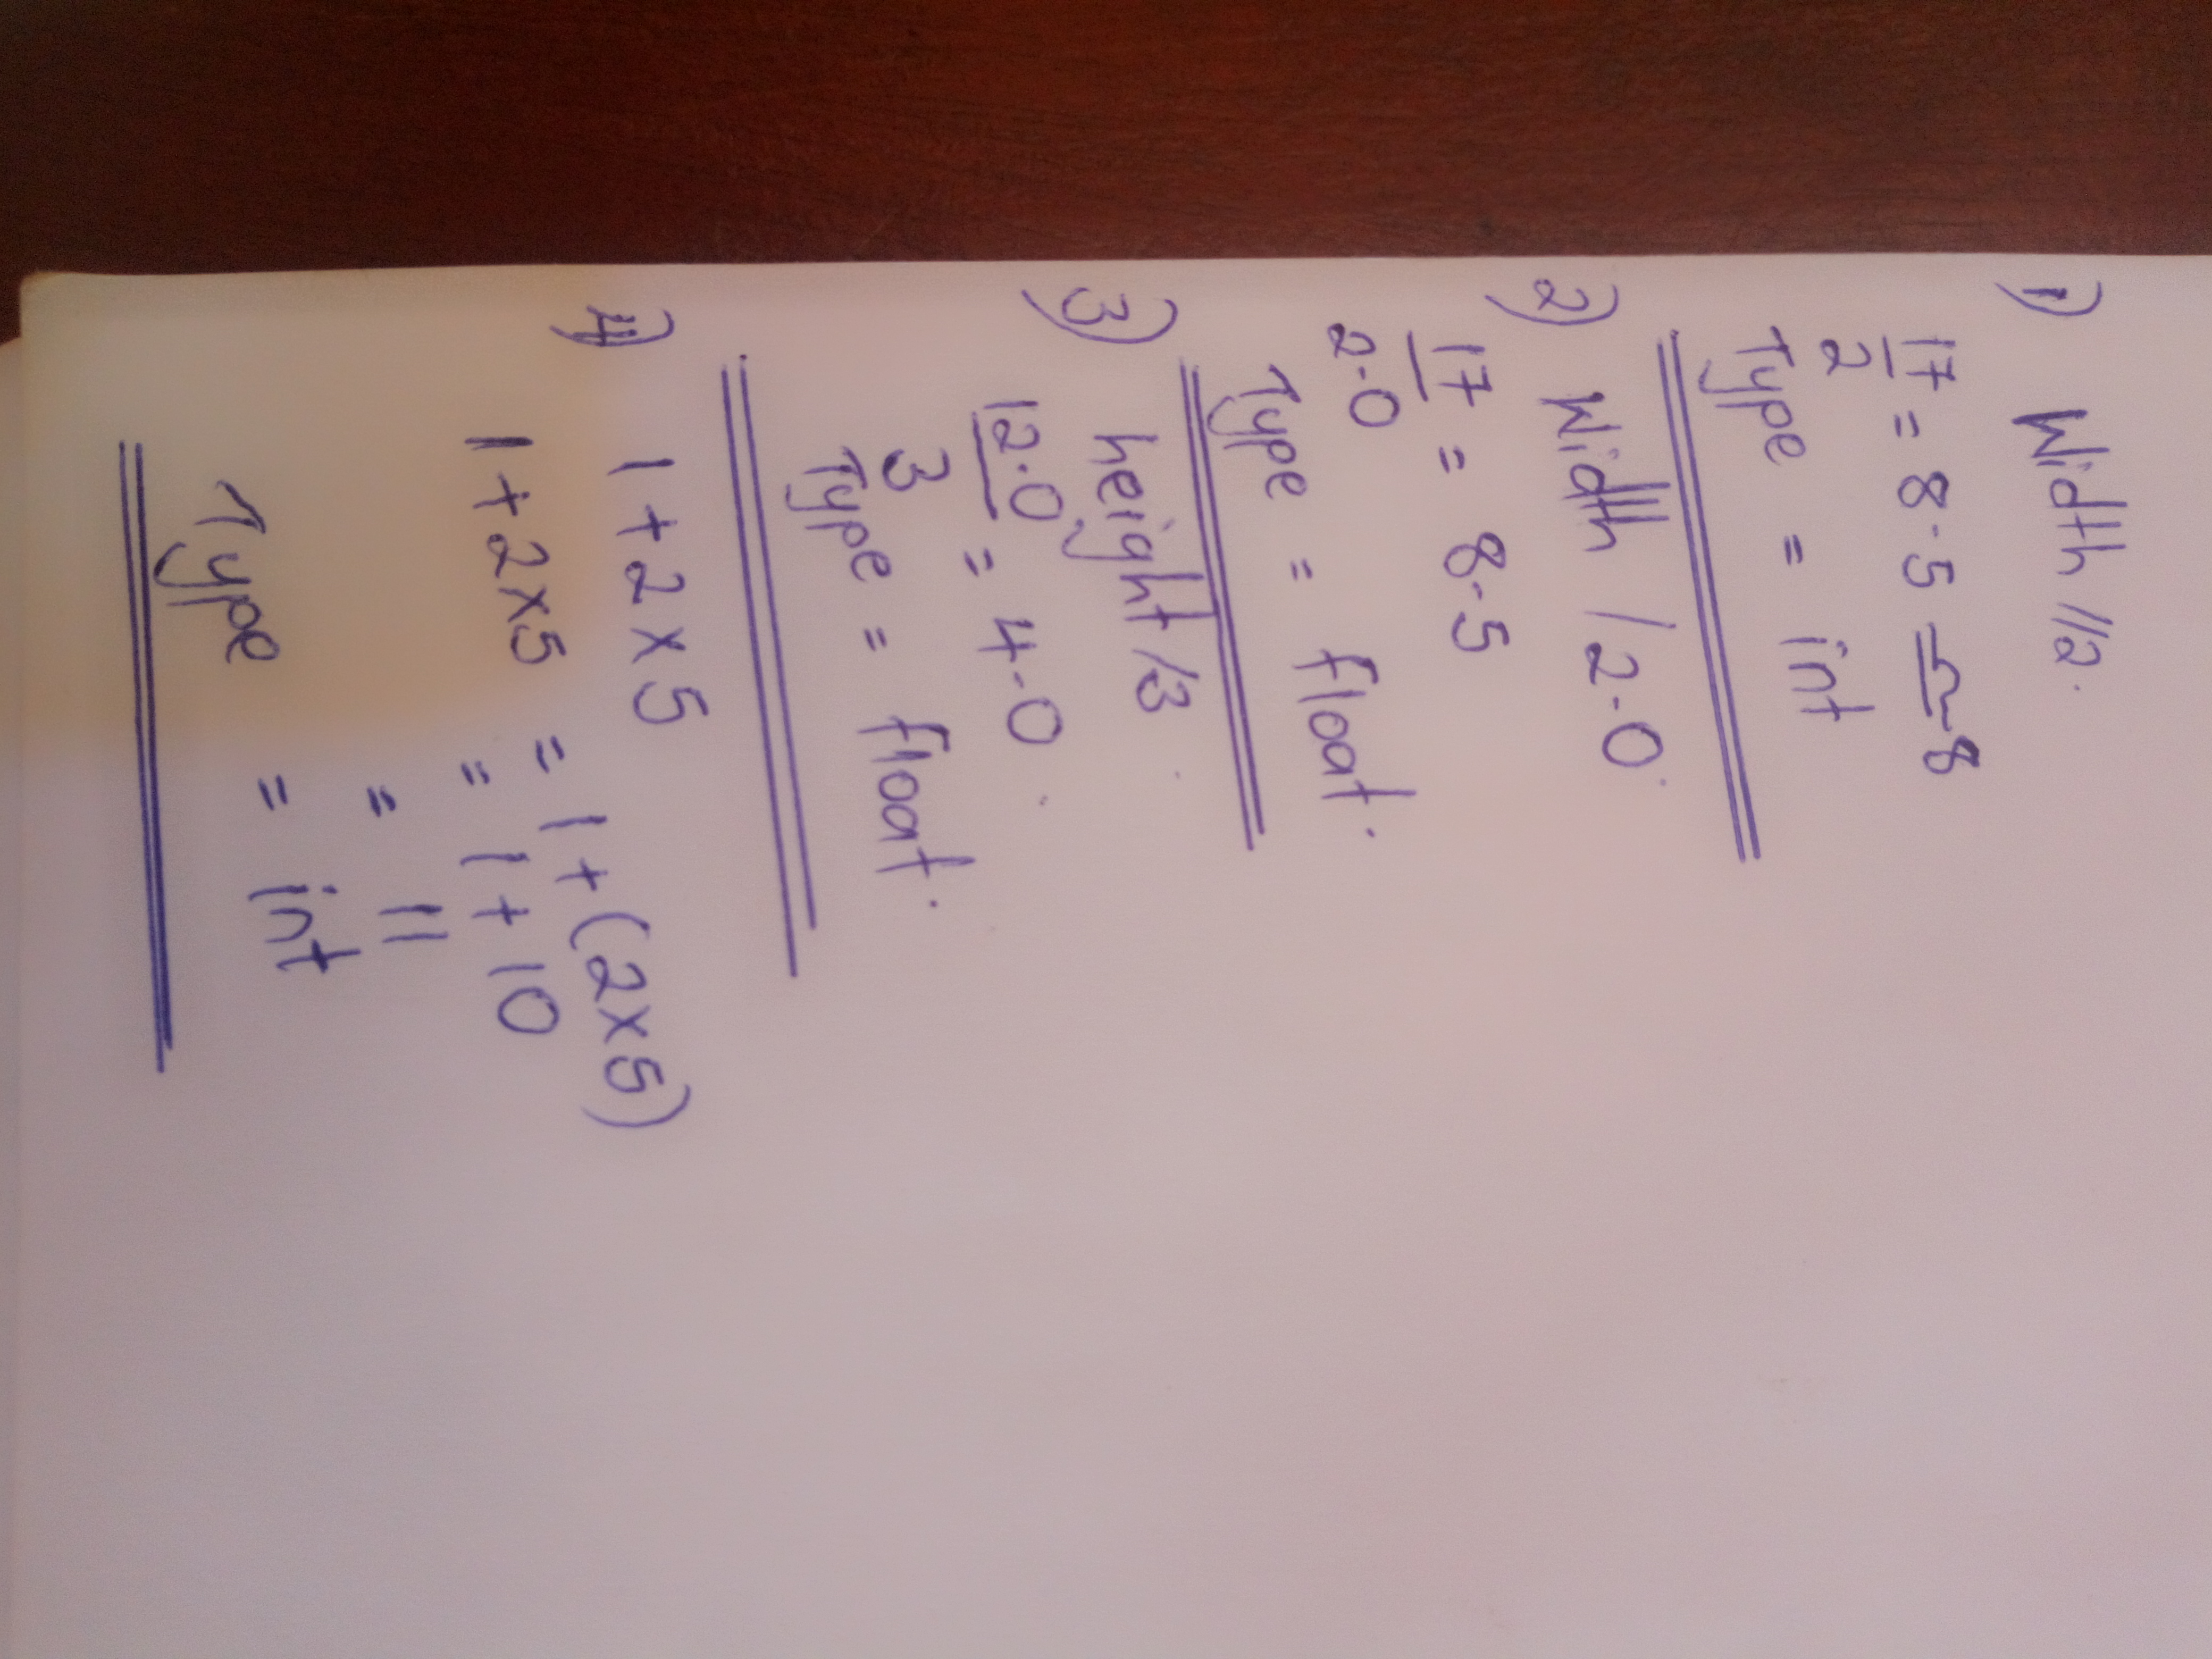 1) Width //2.
17/2 = 8.5 ≏ 8
Type = int
2) Width / 2.0
17/2.0 = 8.5
Type = float.
3) height /3
12.0/3 = 4.0
Type = float.
4) 1 + 2 x 5
1 + 2 x 5 = 1 + (2 x 5)
= 1 + 10
= 11
Type = int